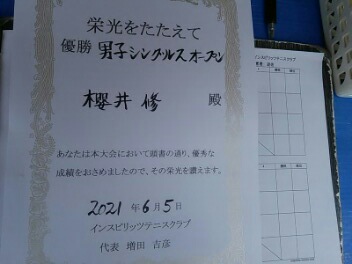 栄光をたたえて
優勝 男子シングルスオープン
櫻井修 殿
あなたは本大会において頭書の通り、優秀な
成績をおさめましたので、その栄光を讃えます。
2021年6月5日
インスピリッツテニスクラブ
代表 増田 吉彦
インスピリッツテニスクラブ